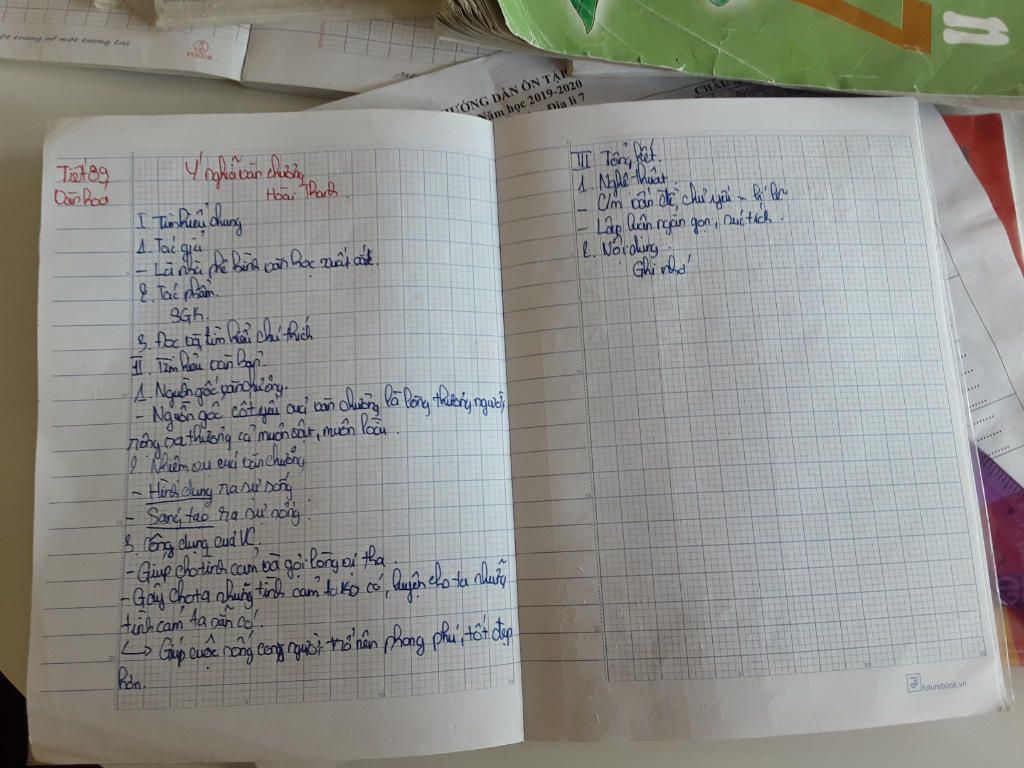 một trang vở một tương lai
HƯỚNG DẪN ÔN TẬP
Năm học 2019-2020
Địa lí 7
Tiết 89
Văn học
Ý nghĩa văn chương
Hoài Thanh.
I Tìm hiểu chung
1. Tác giả
- Là nhà phê bình văn học xuất sắc.
2. Tác phẩm.
SGK.
3. Đọc và tìm hiểu chú thích
II. Tìm hiểu văn bản
1. Nguồn gốc văn chương.
- Nguồn gốc cốt yếu của văn chương là lòng thương người,
rộng ra thương cả muôn vật, muôn loài.
2. Nhiệm vụ của văn chương
- Hình dung ra sự sống
- Sáng tạo ra sự sống.
3. Công dụng của VC
- Giúp cho tình cảm và gợi lòng vị tha.
- Gây cho ta những tình cảm ta ko có, luyện cho ta những
tình cảm ta sẵn có.
↳ Giúp cuộc sống con người trở nên phong phú, tốt đẹp
hơn.
III Tổng kết.
1. Nghệ thuật.
- C/m vấn đề chủ yếu = lí lẽ
- Lập luận ngắn gọn, súc tích.
2. Nội dung.
Ghi nhớ
futurebook.vn